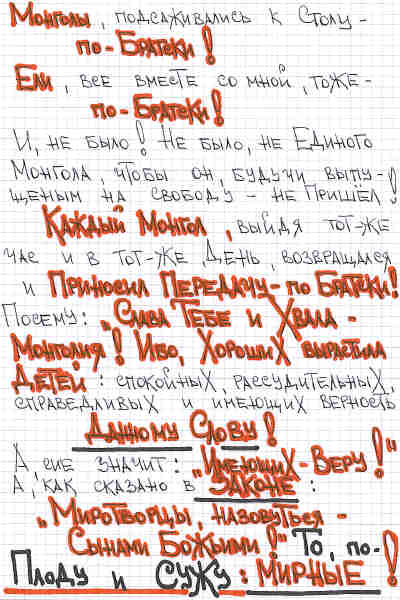 Монголы, подсаживались к Столу -
по - Братски!
Ели, все вместе со мной, тоже -
по - Братски!
И, не было! Не было, не Единого
Монгола, чтобы он, будучи выпу-
щеным на свободу - не Пришёл!
Каждый Монгол, выйдя тот-же
час и в тот-же День, возвращался
и Приносил Передачу - по Братски!
Посему: „Слава Тебе и Хвала -
Монголия! Ибо, Хороших вырастила
Детей: спокойных, рассудительных,
справедливых и имеющих верность
Данному Слову!
А, сие значит: „Имеющих - Веру!"
А, как сказано в Законе:
„Миротворцы, назовуться -
Сынами Божьими!" То, по-
Плоду и Сужу: Мирные!